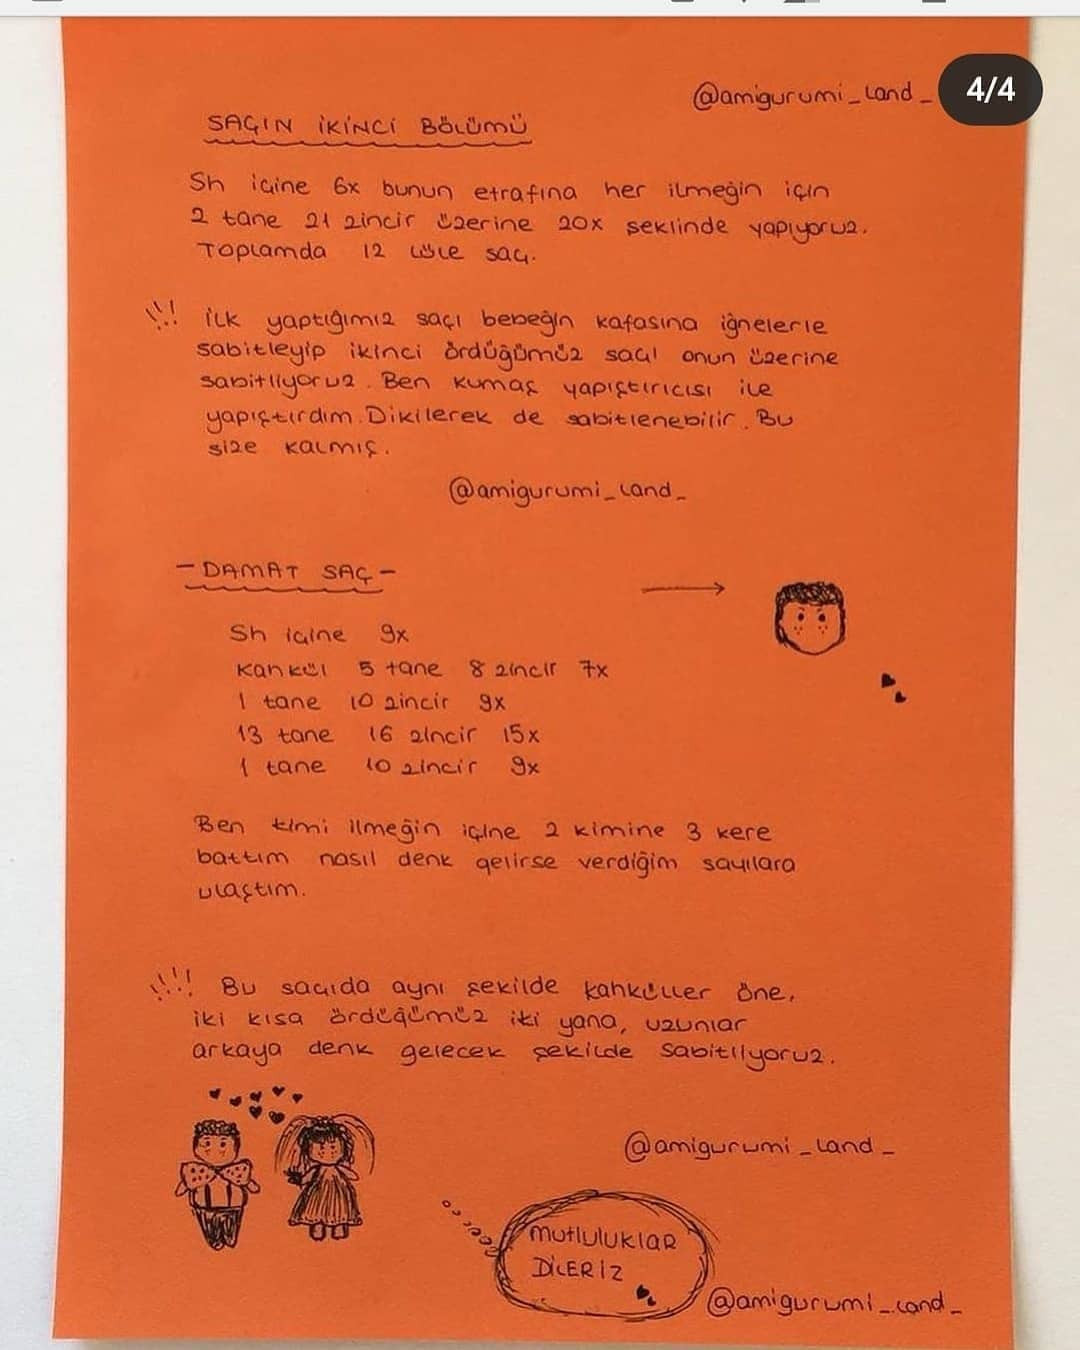 @amigurumi_land_
4/4
SAÇIN İKİNCİ BÖLÜMÜ
Sh içine 6x bunun etrafına her ilmeğin için
2 tane 21 zincir üzerine 20x seklinde yapıyoruz.
Toplamda 12 lüle saç.
!!! İlk yaptığımız saçı bebeğin kafasına iğnelerle
sabitleyip ikinci ördüğümüz saçı onun üzerine
sabitliyoruz. Ben kumaş yapıştırıcısı ile
yapıştırdım. Dikilerek de sabitlenebilir. Bu
size kalmış.
@amigurumi_land_
- DAMAT SAÇ -
Sh içine 9x
Kahkül 5 tane 8 zincir 7x
1 tane 10 zincir 9x
13 tane 16 zincir 15x
1 tane 10 zincir 9x
Ben kimi ilmeğin içine 2 kimine 3 kere
battım nasıl denk gelirse verdiğim sayılara
ulaştım.
!!!! Bu saçıda aynı şekilde kahküller öne,
iki kısa ördüğümüz iki yana, uzunlar
arkaya denk gelecek şekilde sabitliyoruz.
@amigurumi_land_
MUTLULUKLAR
DİLERİZ
@amigurumi_land_